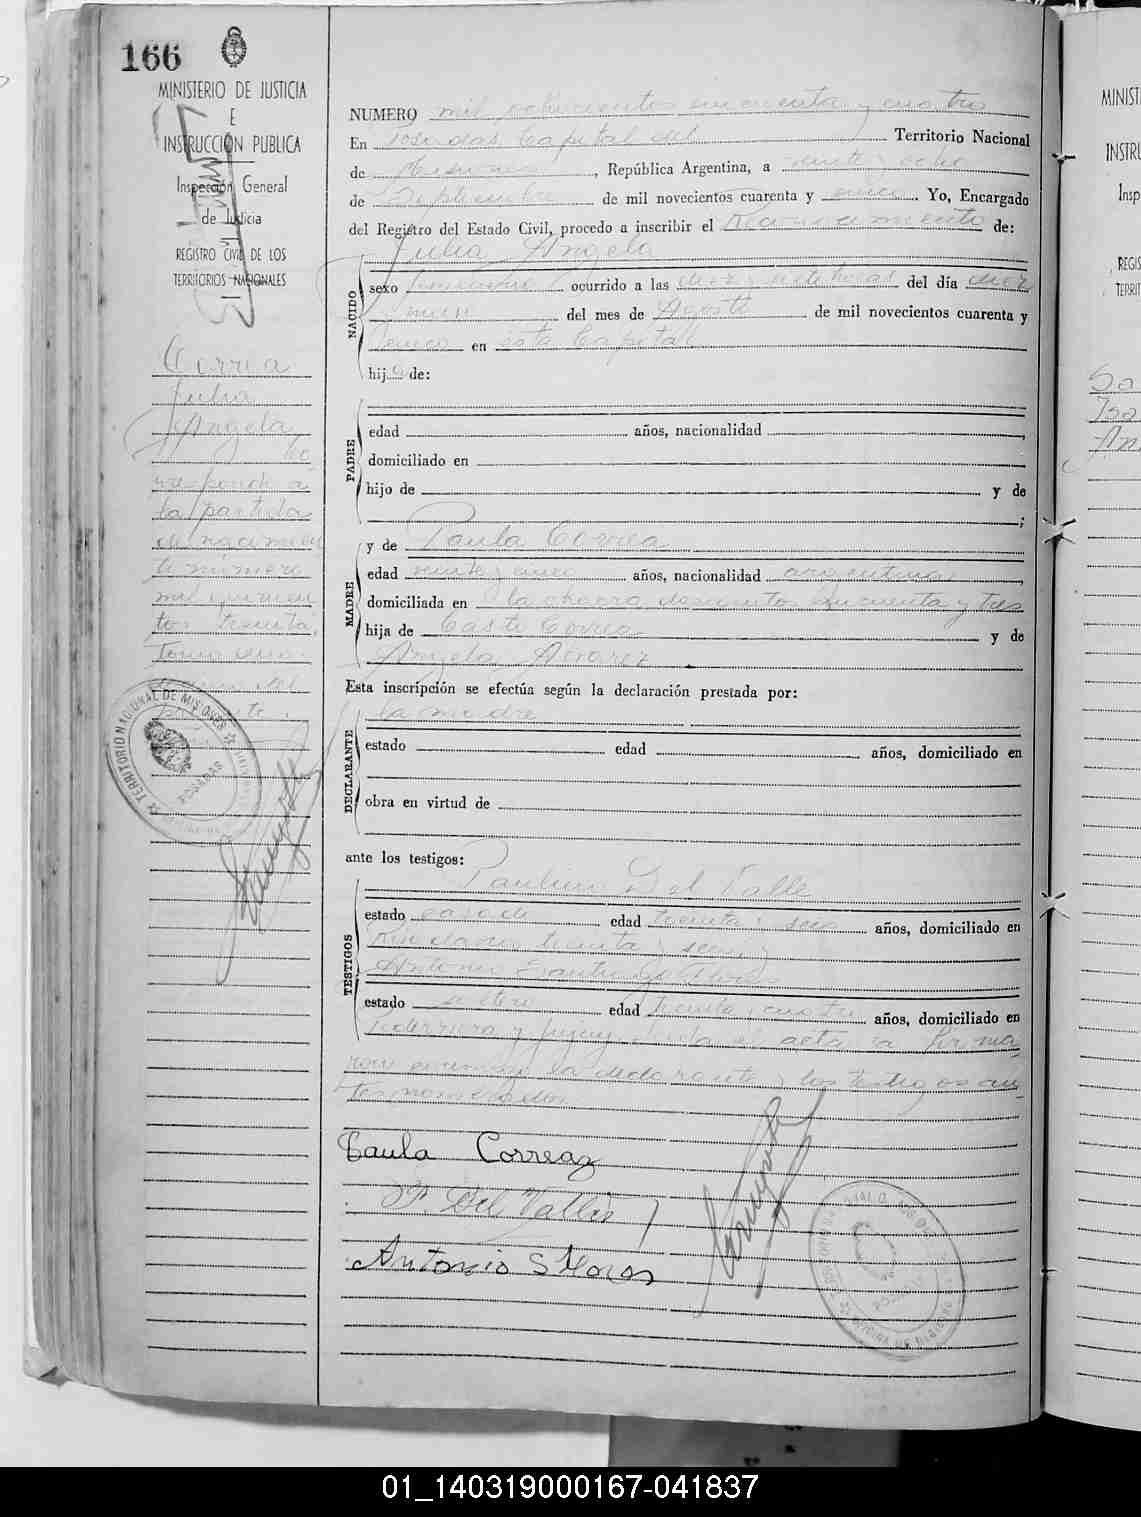 166
MINISTERIO DE JUSTICIA
E
INSTRUCCIÓN PUBLICA
Inspección General
de Justicia
REGISTRO CIVIL DE LOS
TERRITORIOS NACIONALES
Correa
Julia
Angela
Co
rresponde a
la partida
de nacimien
to número
mil quinien
tos treinta,
TERRITORIO NACIONAL DE MISIONES
POSADAS
NUMERO mil ochocientos cincuenta y cuatro
En Posadas, Capital del Territorio Nacional
de Misiones, República Argentina, a veinte y ocho
de Septiembre de mil novecientos cuarenta y cinco. Yo, Encargado
del Registro del Estado Civil, procedo a inscribir el Nacimiento de:
Julia Angela
NACIDO
sexo femenino ocurrido a las diez y siete horas del día diez
del mes de Agosto de mil novecientos cuarenta y
cinco en esta Capital
hija de:
PADRE
edad años, nacionalidad ,
domiciliado en
hijo de y de
;
MADRE
y de Paula Correa
edad veinte y cinco años, nacionalidad argentina,
domiciliada en la chacra doscientos cincuenta y tres
hija de Casto Correa y de
Angela Alvarez
Esta inscripción se efectúa según la declaración prestada por:
la madre
DECLARANTE
estado edad años, domiciliado en
obra en virtud de
ante los testigos:
Paulino Del Valle
TESTIGOS
estado casado edad treinta y seis años, domiciliado en
Rivadavia treinta y
Antonio
estado soltero edad treinta y cuatro años, domiciliado en
y Jujuy. Leída el acta la firma
ron conmigo la declarante y los testigos an
tes nombrados
Paula Correa
P. Del Valle
Antonio S Flores
MINIST
INSTRU
Insp
REGIS
TERRIT
01_140319000167-041837